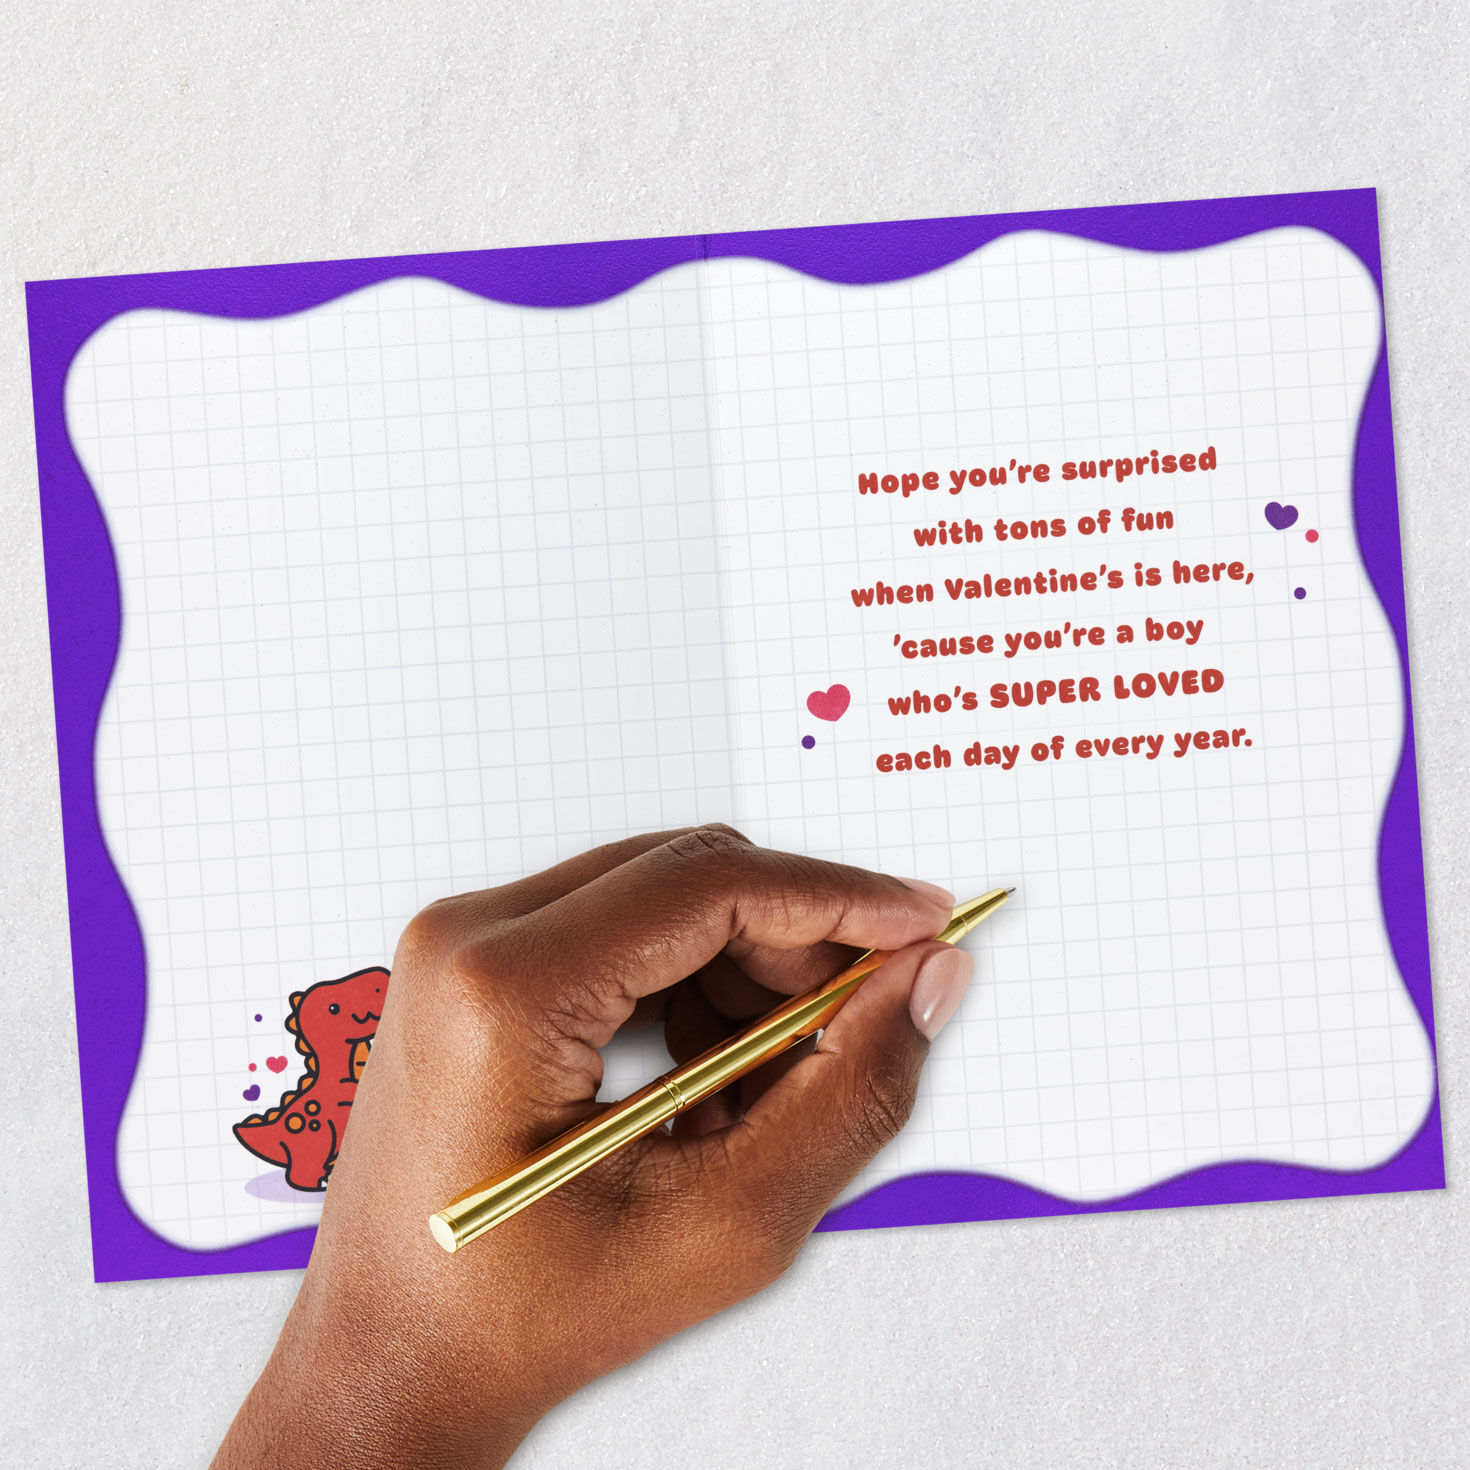 Hope you're surprised
with tons of fun
when Valentine's is here,
'cause you're a boy
who's SUPER LOVED
each day of every year.